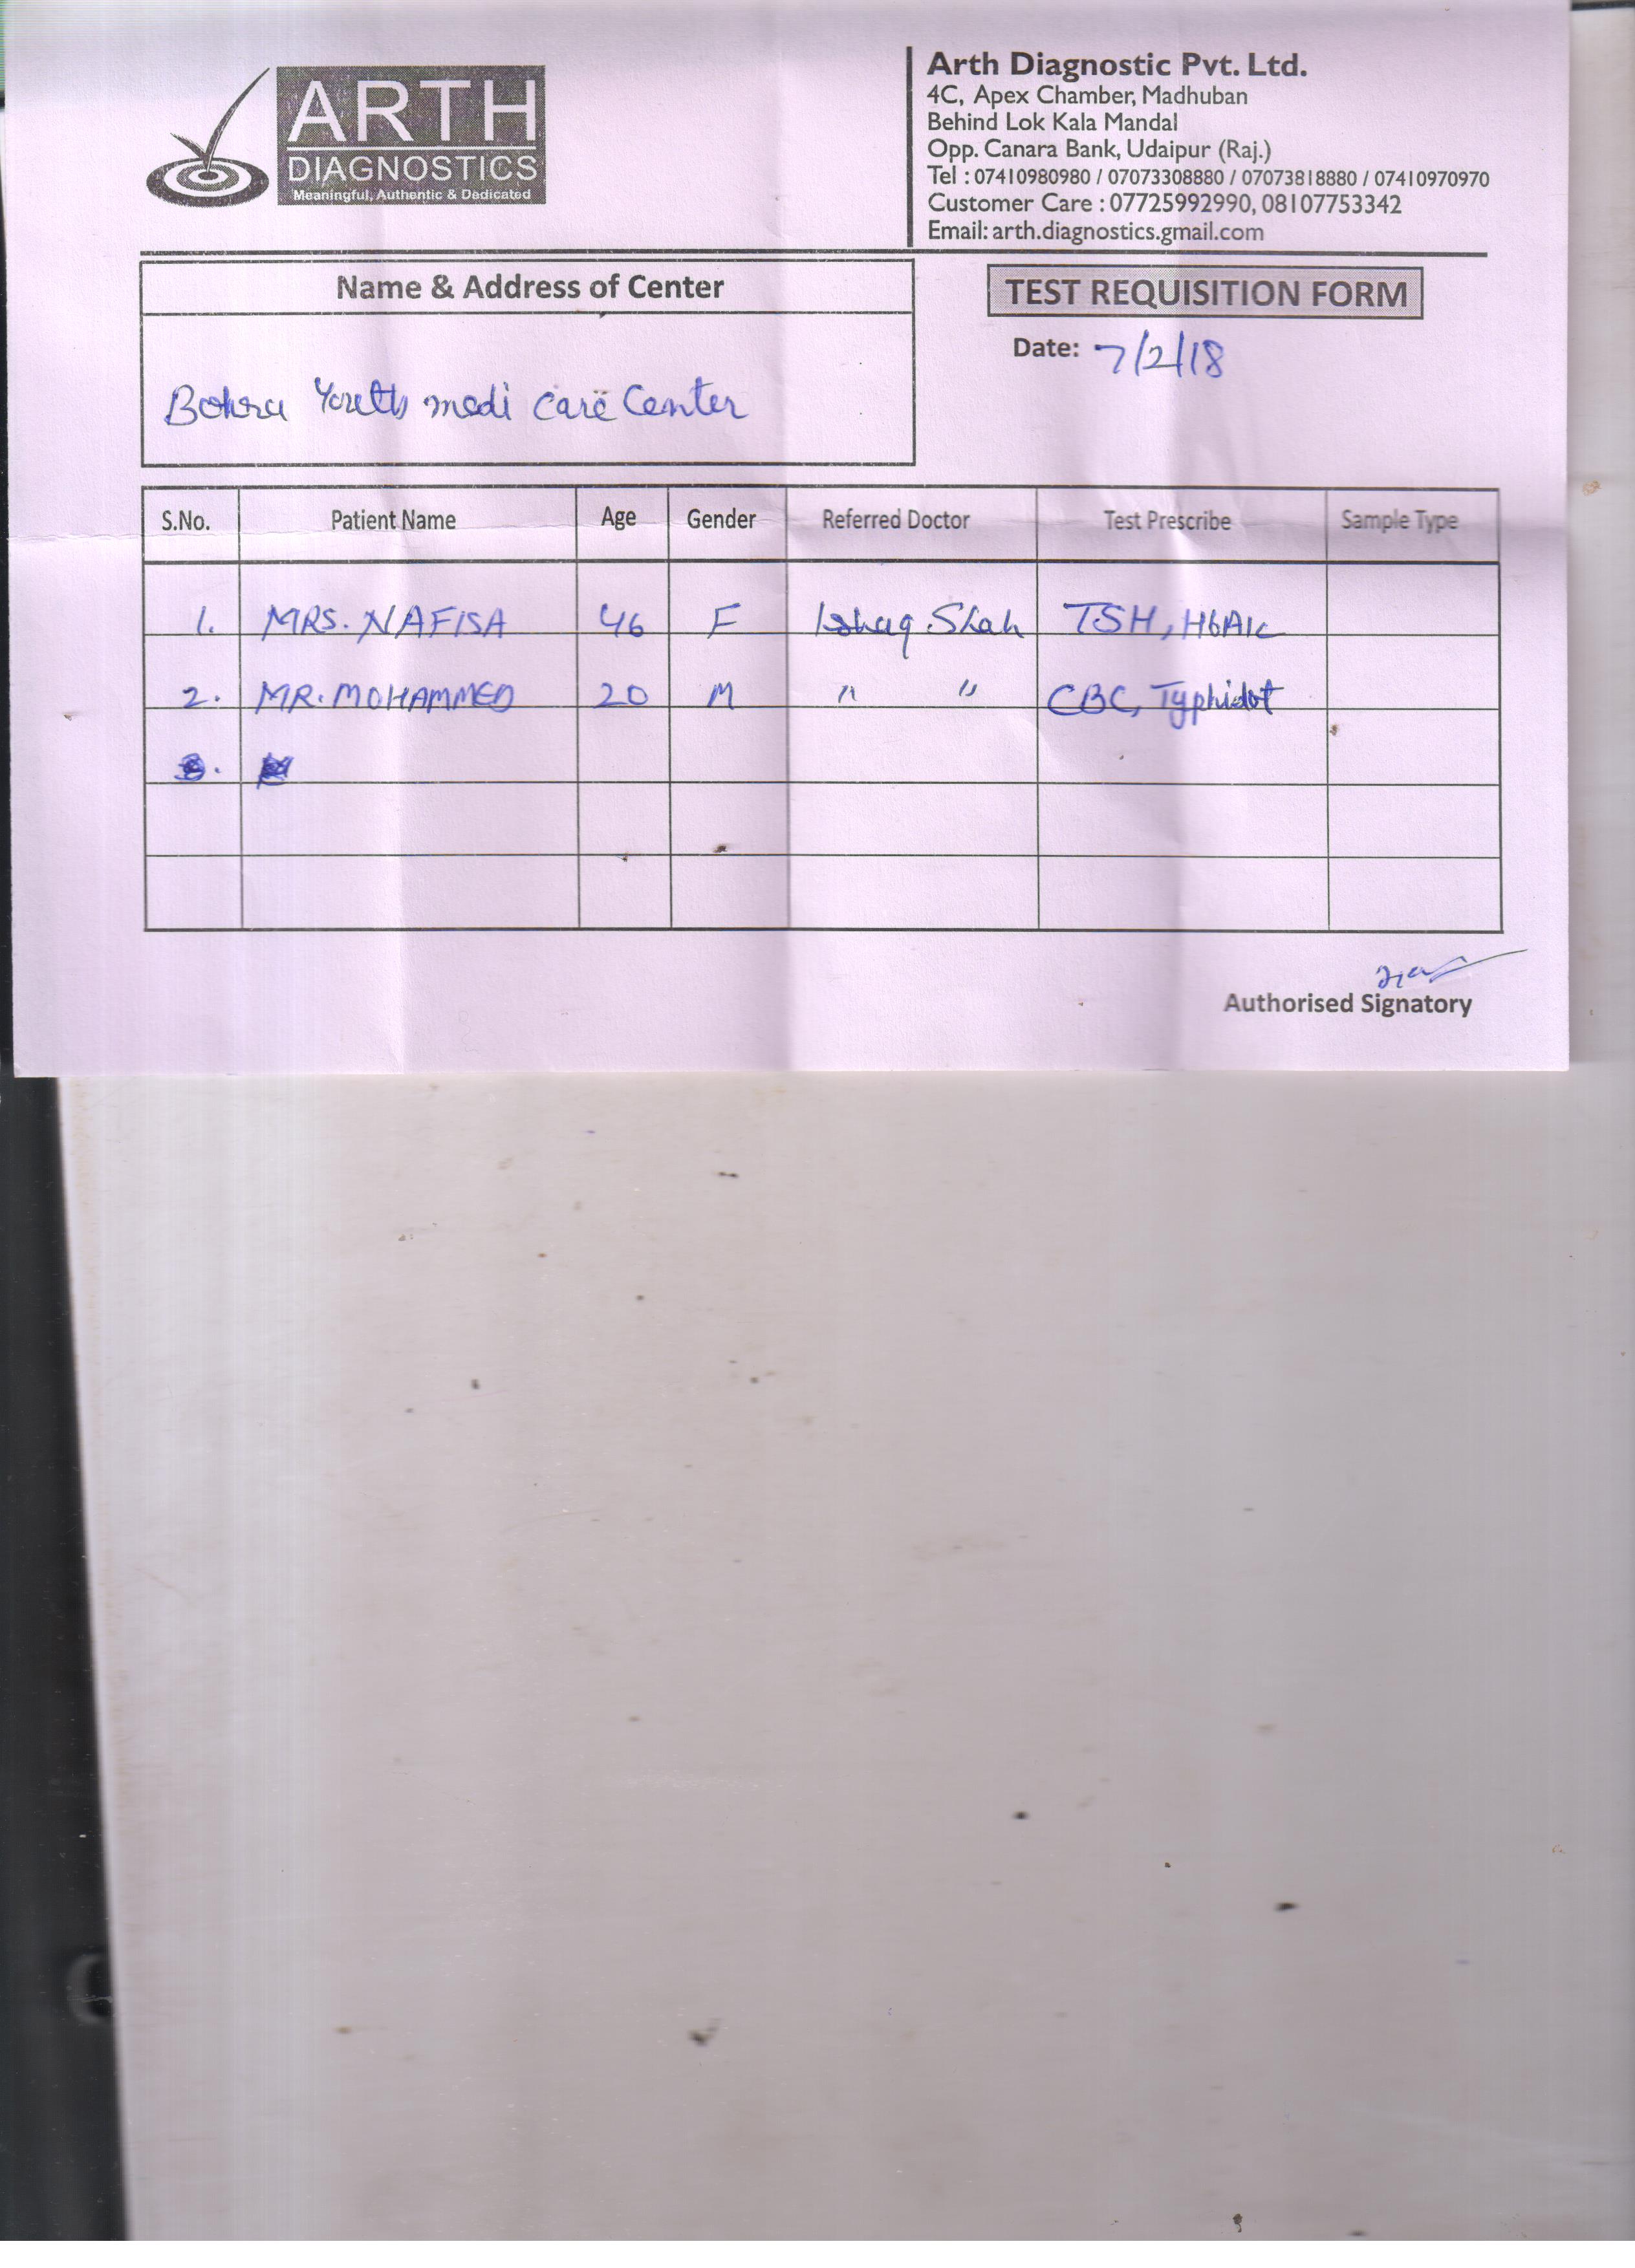 ARTH
DIAGNOSTICS
Meaningful, Authentic & Dedicated
Arth Diagnostic Pvt. Ltd.
4C, Apex Chamber, Madhuban
Behind Lok Kala Mandal
Opp. Canara Bank, Udaipur (Raj.)
Tel : 07410980980 / 07073308880 / 07073818880 / 07410970970
Customer Care : 07725992990, 08107753342
Email: arth.diagnostics.gmail.com
Name & Address of Center
Bohra Youth medi care Center
TEST REQUISITION FORM
Date: 7/2/18
S.No. Patient Name Age Gender Referred Doctor Test Prescribe Sample Type
1. MRS. NAFISA 46 F Ishaq Shah TSH, HbA1c
2. MR. MOHAMMED 20 M " " CBC, Typhidot
Authorised Signatory